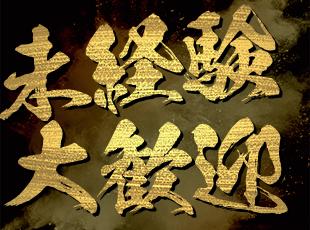 未経験
大歓迎